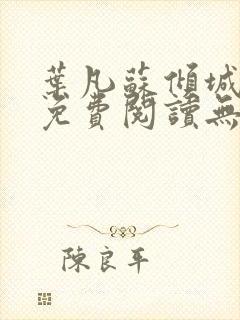 葉凡蘇傾城
免費閱讀無
陳良平